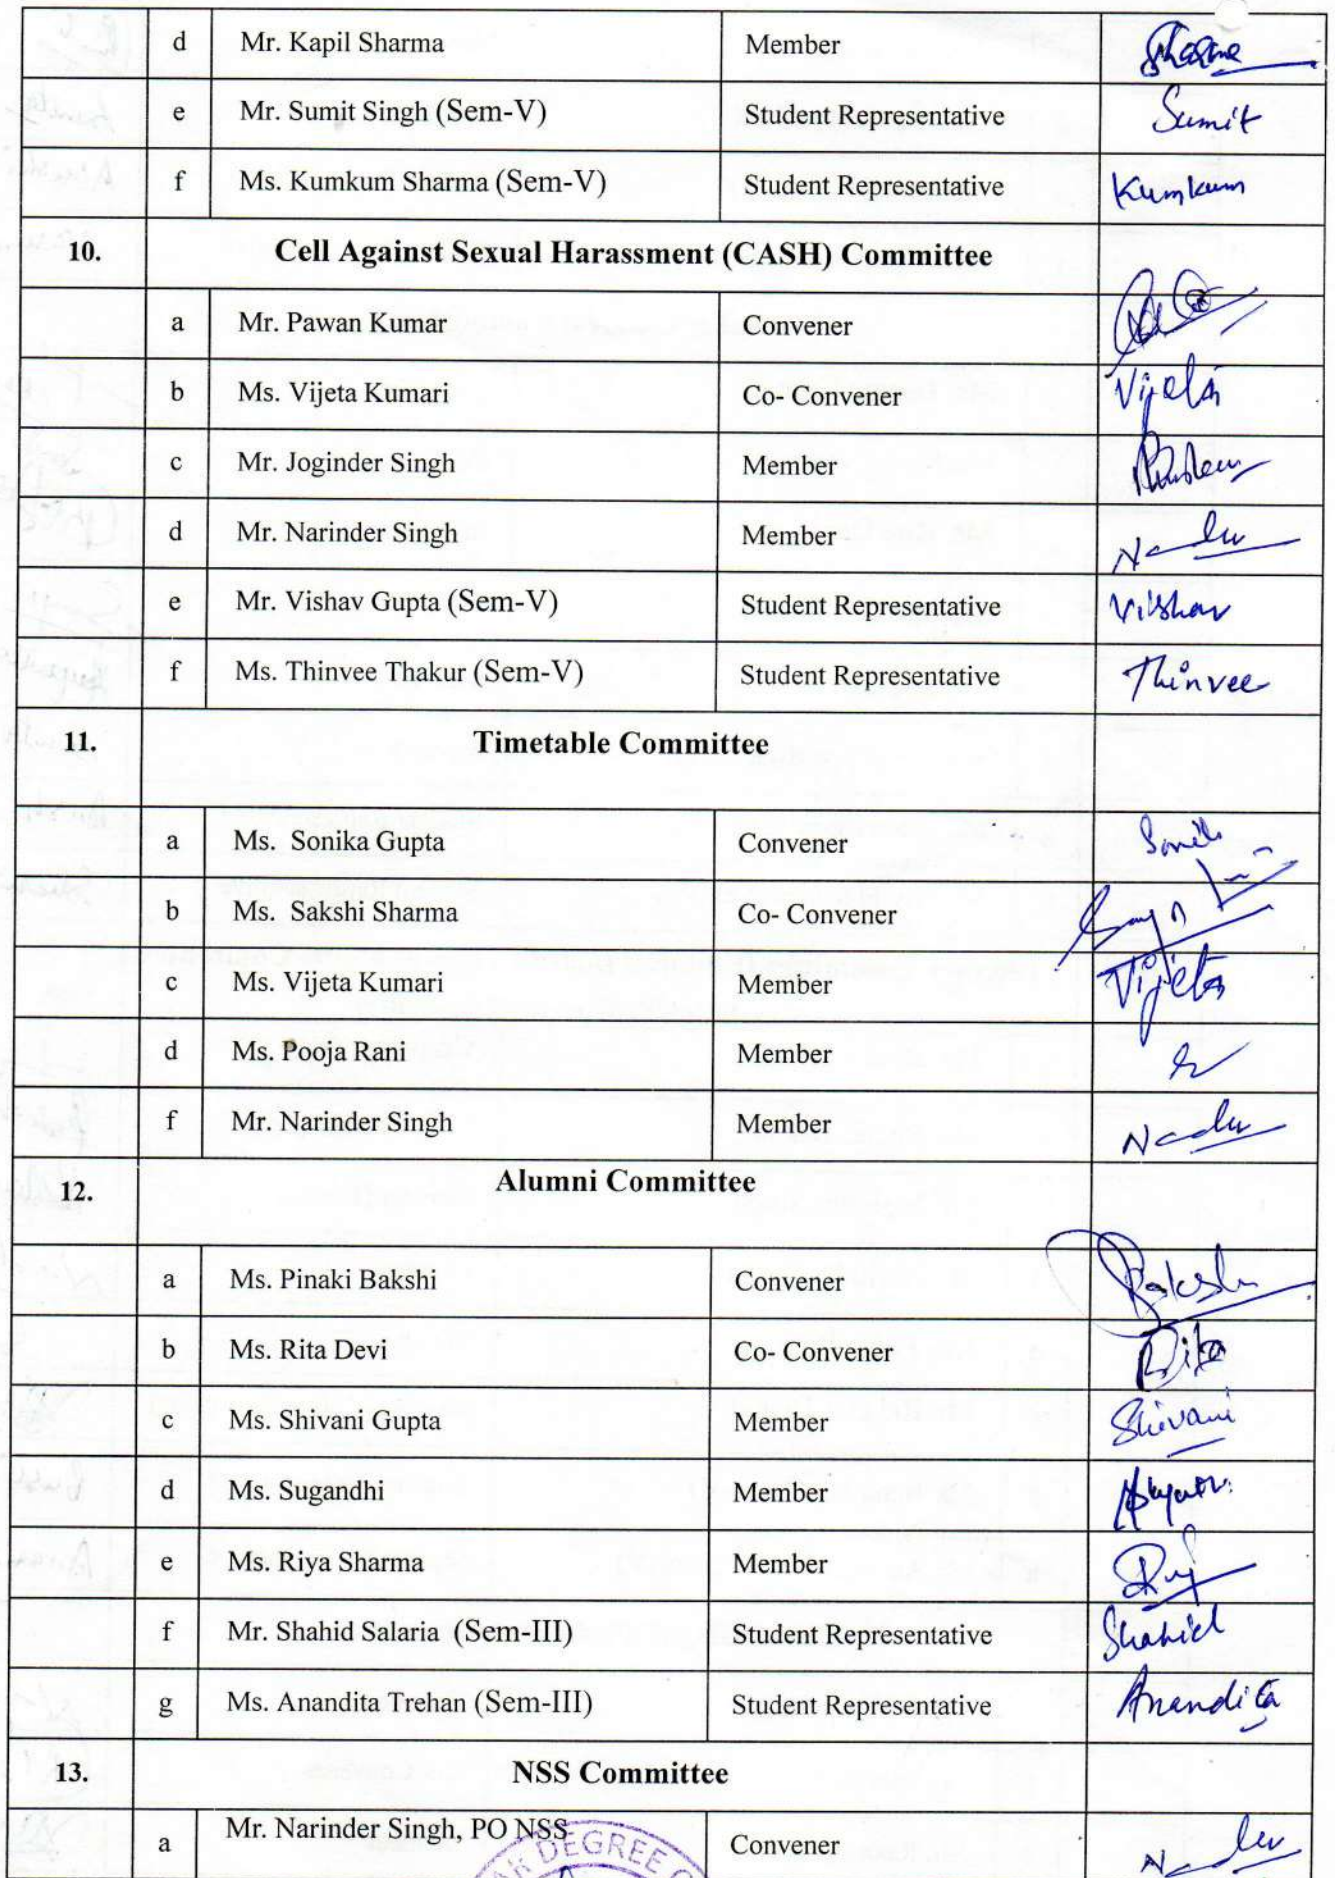 d Mr. Kapil Sharma Member Sharma
e Mr. Sumit Singh (Sem-V) Student Representative Sumit
f Ms. Kumkum Sharma (Sem-V) Student Representative Kumkum
10. Cell Against Sexual Harassment (CASH) Committee
a Mr. Pawan Kumar Convener
b Ms. Vijeta Kumari Co- Convener Vijeta
c Mr. Joginder Singh Member
d Mr. Narinder Singh Member
e Mr. Vishav Gupta (Sem-V) Student Representative Vishav
f Ms. Thinvee Thakur (Sem-V) Student Representative Thinvee
11. Timetable Committee
a Ms. Sonika Gupta Convener
b Ms. Sakshi Sharma Co- Convener
c Ms. Vijeta Kumari Member Vijeta
d Ms. Pooja Rani Member
f Mr. Narinder Singh Member
12. Alumni Committee
a Ms. Pinaki Bakshi Convener Bakshi
b Ms. Rita Devi Co- Convener Rita
c Ms. Shivani Gupta Member Shivani
d Ms. Sugandhi Member
e Ms. Riya Sharma Member
f Mr. Shahid Salaria (Sem-III) Student Representative Shahid
g Ms. Anandita Trehan (Sem-III) Student Representative Anandita
13. NSS Committee
a Mr. Narinder Singh, PO NSS Convener
DEGREE